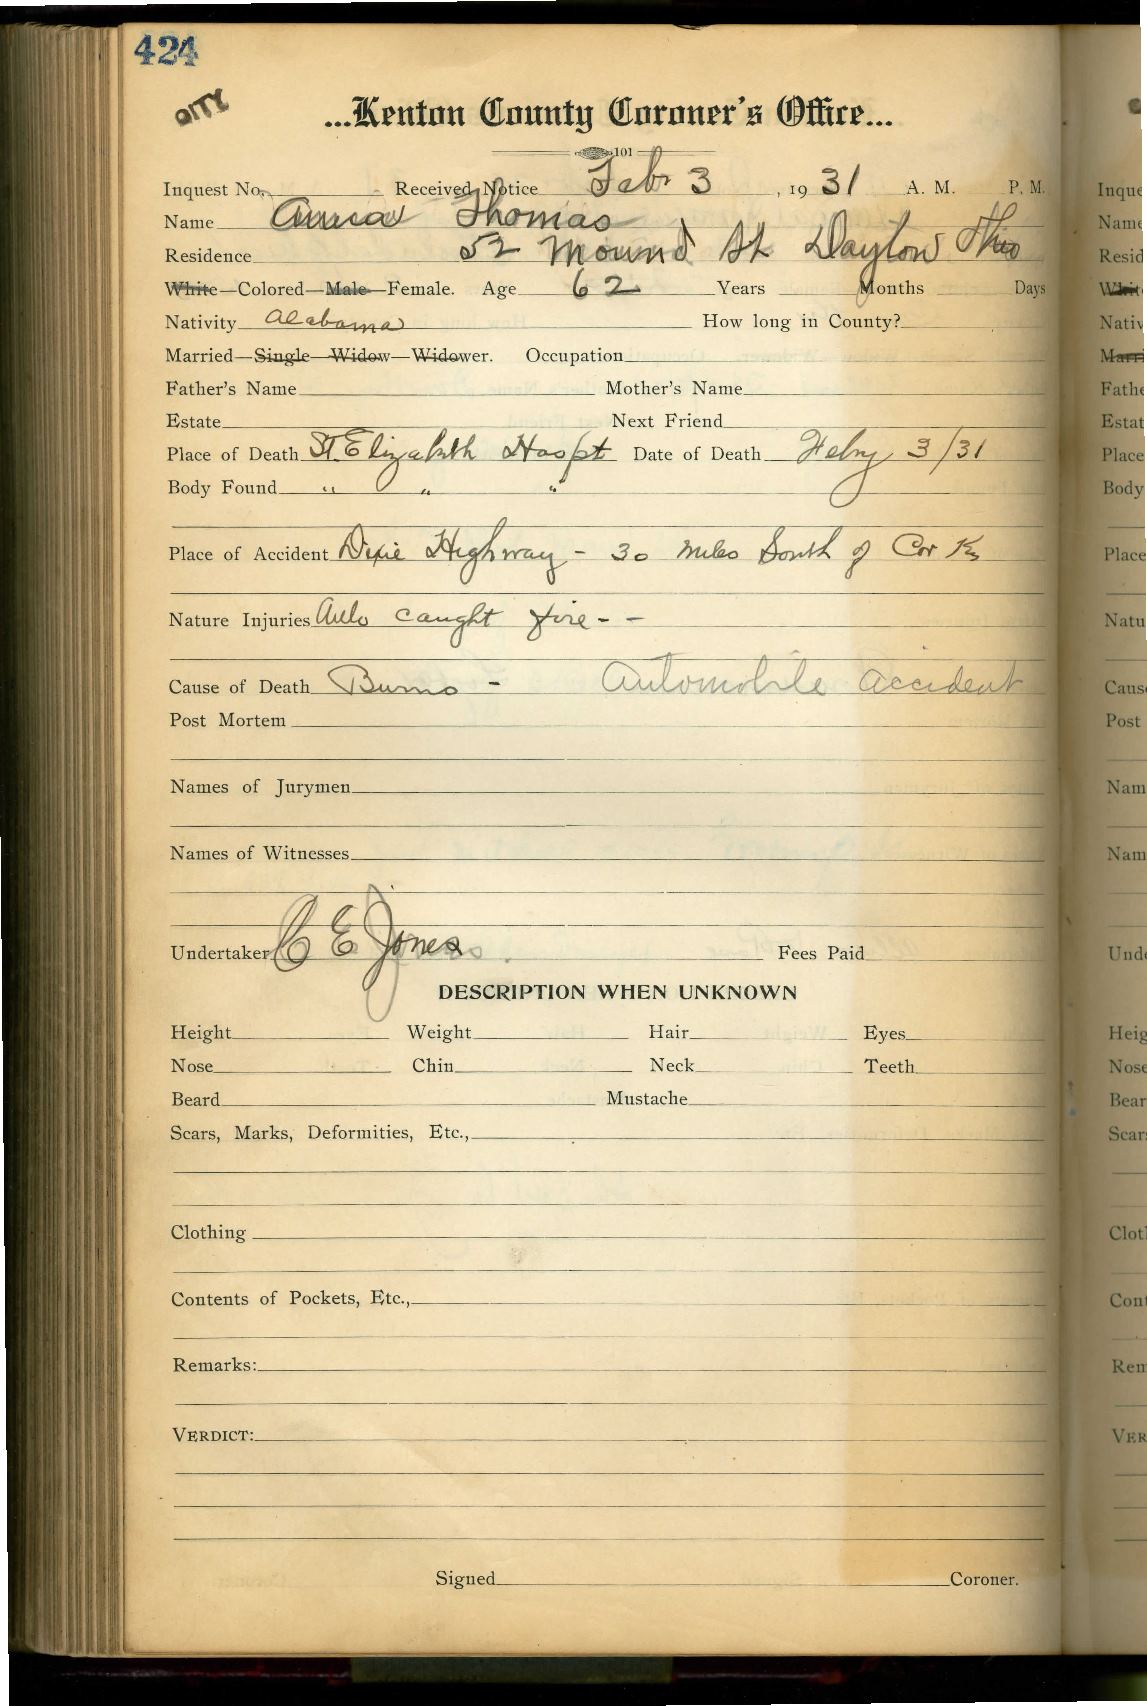 424
CITY
...Kenton County Coroner's Office...
101
Inquest No. Received Notice Feb 3, 1931 A. M. P. M.
Name Anna Thomas
Residence 52 Mound St Dayton Ohio
White—Colored—Male—Female. Age 62 Years Months Days
Nativity Alabama How long in County?
Married—Single—Widow—Widower. Occupation
Father's Name Mother's Name
Estate Next Friend
Place of Death St Elizabeth Hospt Date of Death Feby 3/31
Body Found " " "
Place of Accident Dixie Highway - 30 miles South of Cov Ky
Nature Injuries Auto caught fire - -
Cause of Death Burns - Automobile Accident
Post Mortem
Names of Jurymen
Names of Witnesses
Undertaker C E Jones Fees Paid
DESCRIPTION WHEN UNKNOWN
Height Weight Hair Eyes
Nose Chin Neck Teeth
Beard Mustache
Scars, Marks, Deformities, Etc.,
Clothing
Contents of Pockets, Etc.,
Remarks:
VERDICT:
Signed Coroner.